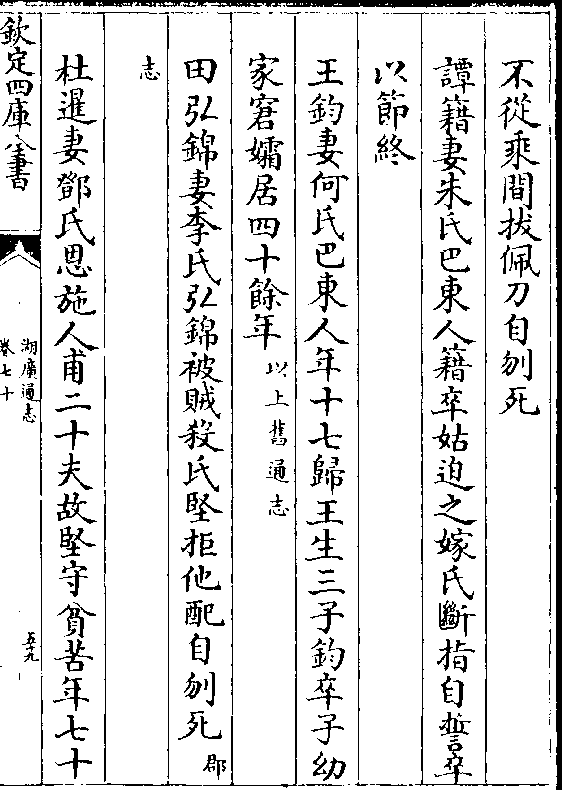 不從乘間拔佩刀自刎死
譚籍妻朱氏巴東人籍卒姑迫之嫁氏斷指自誓卒
以節終
王鈞妻何氏巴東人年十七歸王生三子鈞卒子幼
家窘孀居四十餘年以上舊通志
田弘錦妻李氏弘錦被賊殺氏堅拒他配自刎死郡
志
杜暹妻鄧氏恩施人甫二十夫故堅守貧苦年七十
欽定四庫全書
湖廣通志
卷七十
五十九